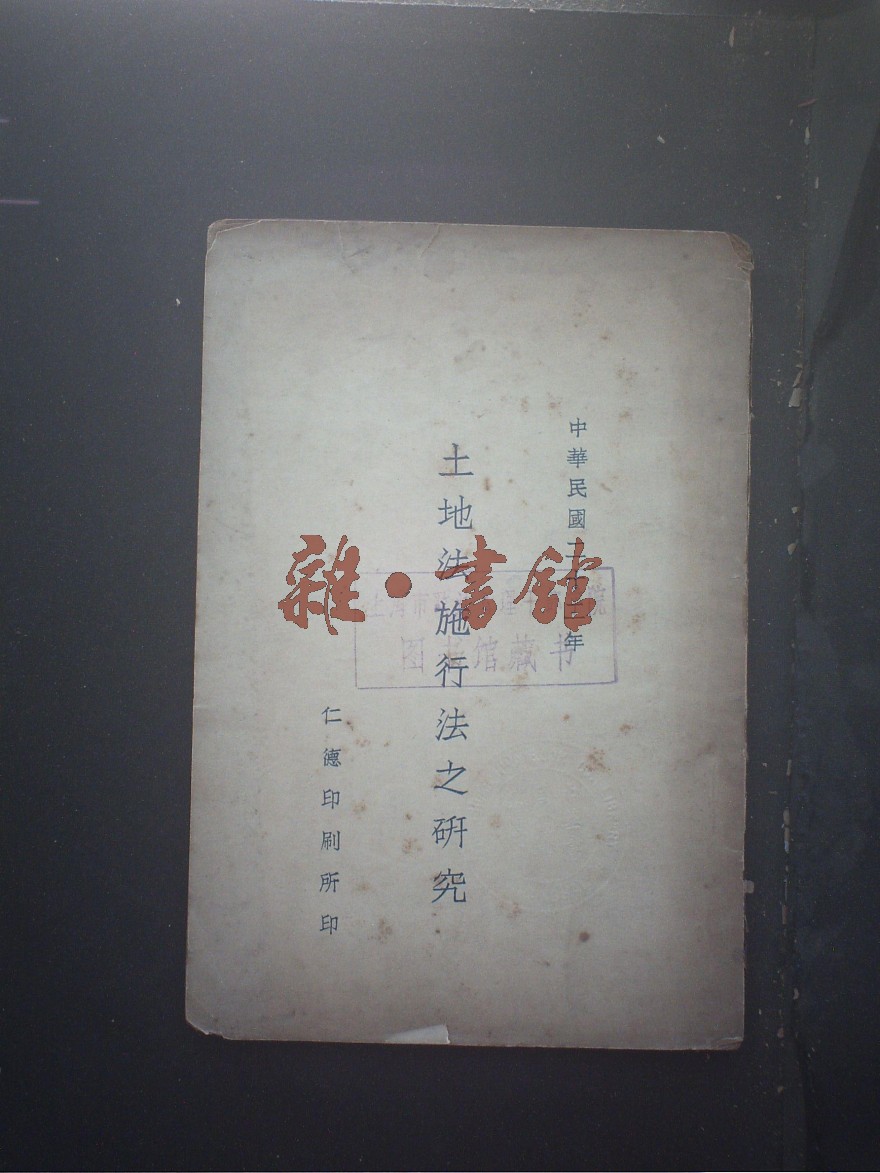 中華民國二十
年
土地法施行法之研究
仁德印刷所印
雜·書館
上海市
图书馆藏书